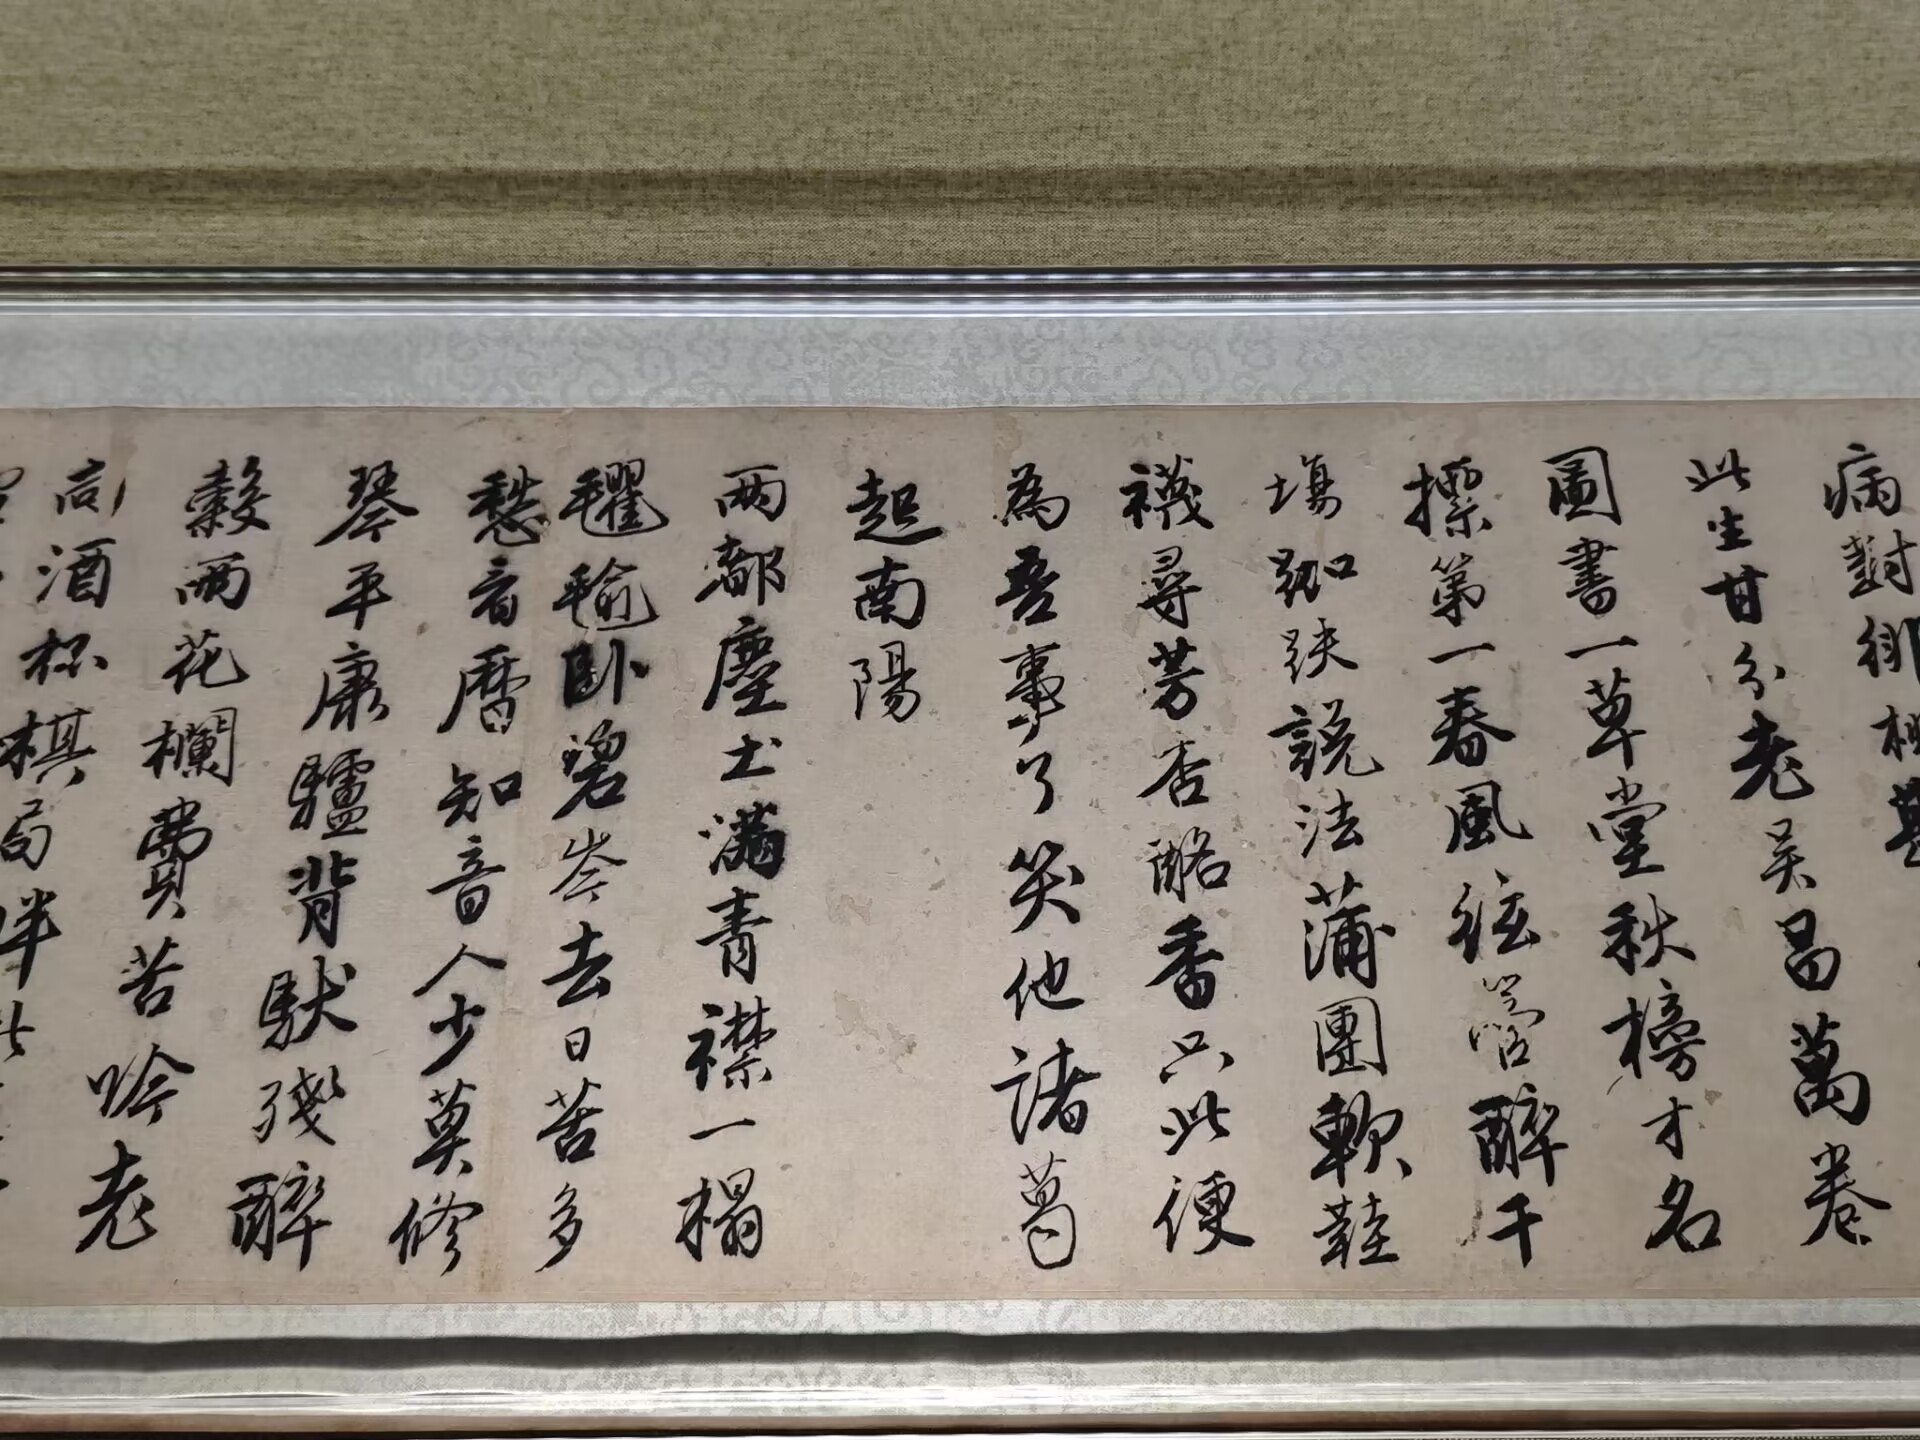 病對緋桃
此生甘分老吳昌萬卷
圖書一草堂秋榜才名
標第一春風絃管醉千
場跏趺說法蒲團軟鞋
襪尋芳杏酪香只此便
為吾事了笑他諸葛
起南陽
兩都塵土滿青襟一榻
氍毹臥碧岑去日苦多
愁看曆知音人少莫修
琴平康驢背馱殘醉
穀雨花欄費苦吟老
向酒杯棋局畔此